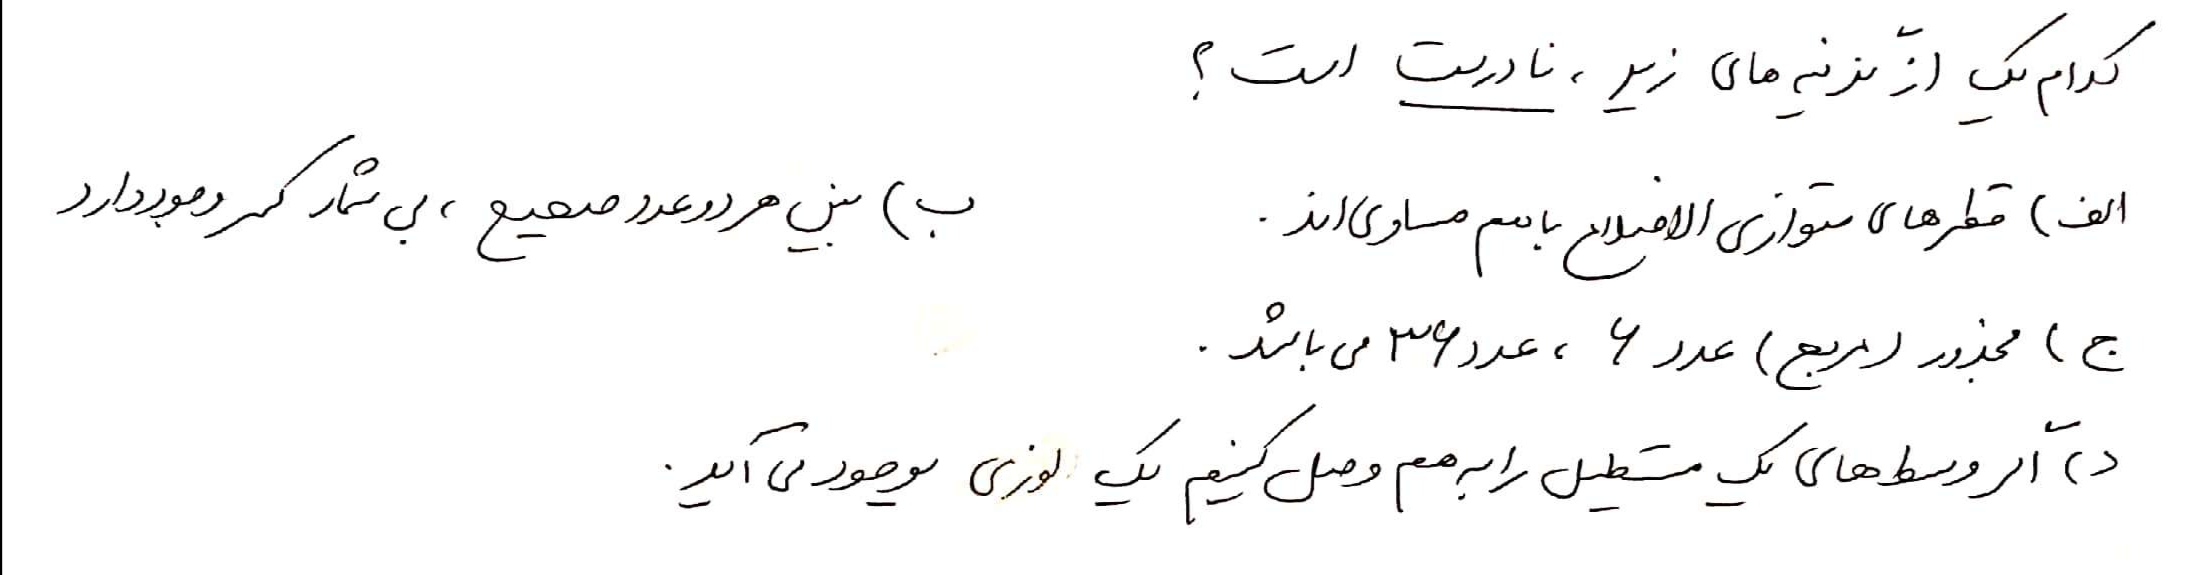 کدام یک از گزینه های زیر ، نادرست است ؟
الف) قطرهای متوازی الاضلاع باهم مساوی اند . ب) بین هر دو عدد صحیح ، بی شمار کسر وجود دارد
ج) مجذور (مربع) عدد ۶ ، عدد ۳۶ می باشد .
د) اگر وسط های یک مستطیل را به هم وصل کنیم یک لوزی بوجود می آید .